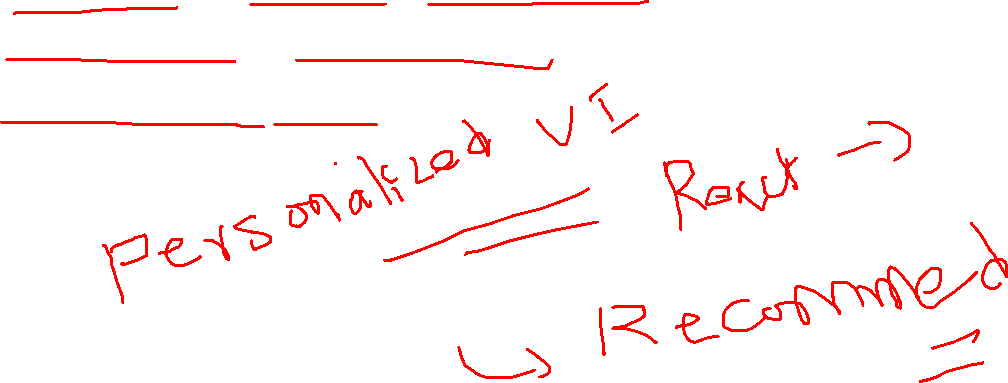 Personalized VI
React →
↳ Recommed